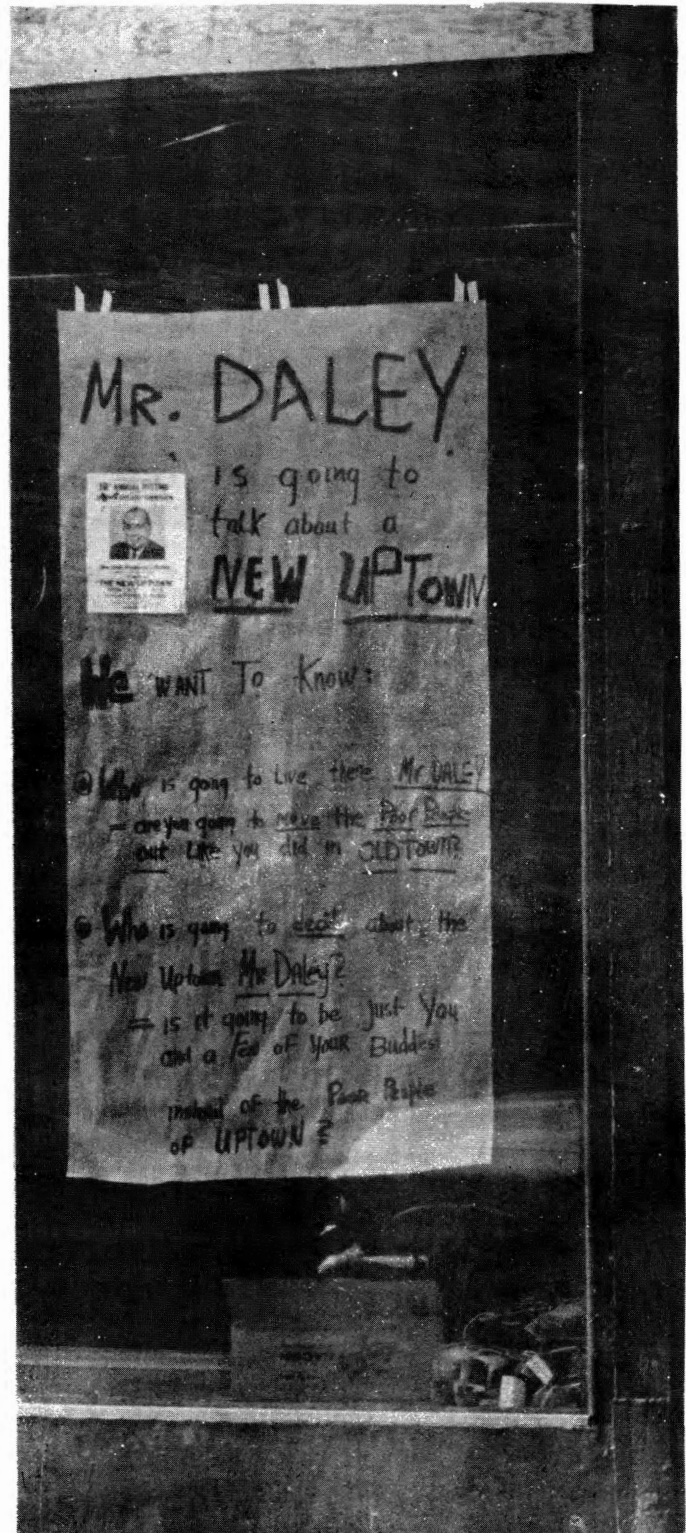 MR. DALEY
is going to
talk about a
NEW UPTOWN
THE NEW UPTOWN
We WANT To Know:
Who is going to Live there Mr DALEY
= are you going to move the Poor People
out Like you did in OLD TOWN?
Who is going to about the
New Uptown Mr Daley?
= is it going to be just You
and a Few of Your Buddies
instead of the Poor People
of UPTOWN?